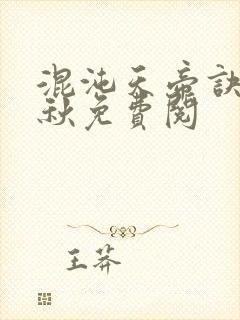 混沌天帝訣
秋免費閱
王莽